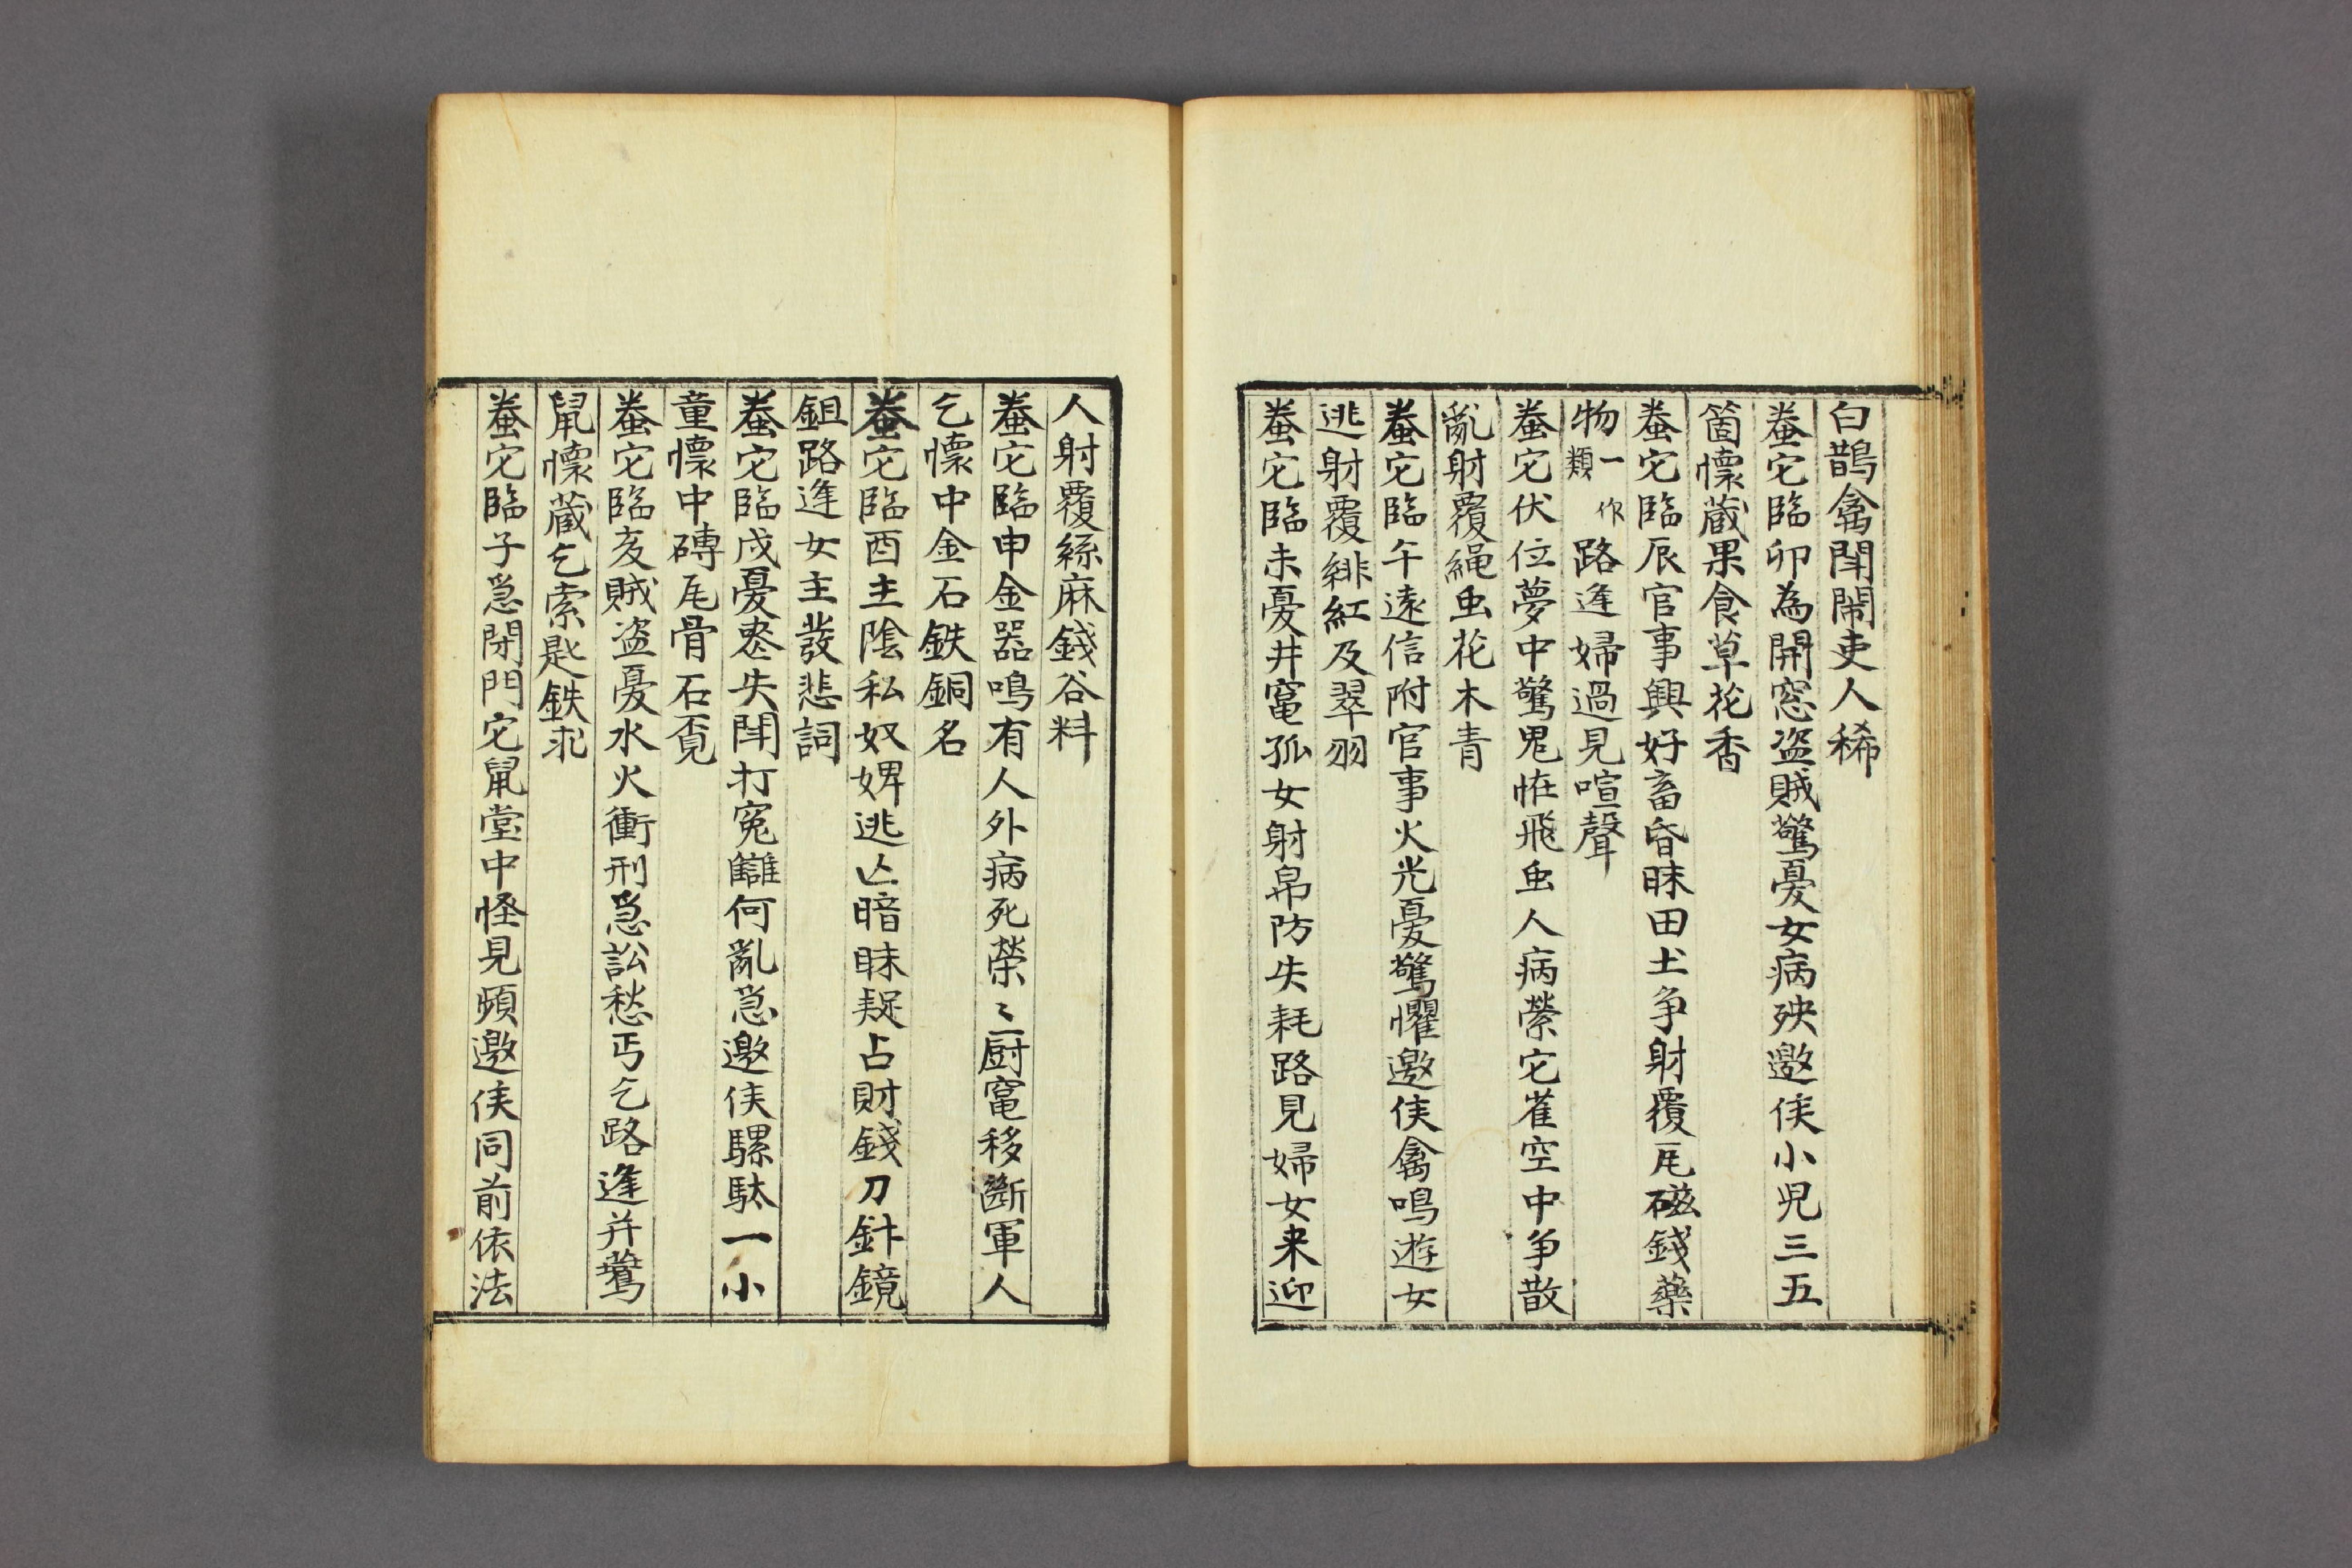 白鵲禽聞鬧吏人稀
螣它臨卯為開窓盗賊驚憂女病殃邀伕小児三五
箇懷蔵果食草花香
螣它臨辰官事興好畜昏昧田土争射覆瓦磁錢藥
物一作類路逢婦過見喧聲
螣它伏位夢中驚鬼恠飛虫人病縈它雀空中争散
亂射覆繩虫花木青
螣它臨午遠信附官事火光憂驚懼邀伕禽鳴遊女
逃射覆緋紅及翠羽
螣它臨未憂井竃孤女射帛防失耗路見婦女来迎
人射覆絲麻錢谷料
螣它臨申金器鳴有人外病死縈〻厨竃移斷軍人
乞懷中金石鉄銅名
螣它臨酉主陰私奴婢逃亡暗昧疑占財錢刀針鏡
鉏路逢女主發悲詞
螣它臨戌憂愁失聞打寃讎何亂急邀伕騾駄一小
童懷中磚瓦骨石覔
螣它臨亥賊盗憂水火衝刑急訟愁丐乞路逢并鴛
鼠懷蔵乞索匙鉄求
螣它臨子急閉門它鼠堂中怪見頻邀伕同前依法